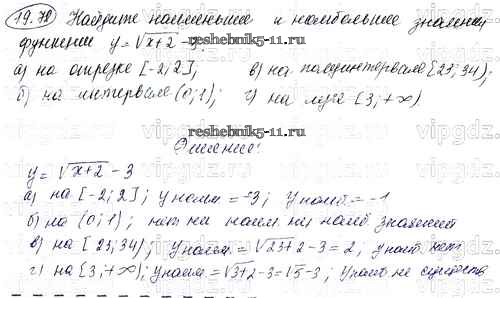 19.70 Найдите наименьшее и наибольшее значения
функции y=√x+2 -3
а) на отрезке [-2;2]; в) на полуинтервале [23;34);
б) на интервале (0;1); г) на луче [3;+∞)
reshebnik5-11.ru
Решение:
y=√x+2 -3
а) на [-2;2]; y наим = -3; y наиб = -1
б) на (0;1); нет ни наим ни наиб значений
в) на [23;34); y наим = √23+2 -3=2, y наиб нет
г) на [3;+∞); y наим = √3+2 -3=√5-3; y наиб не существ